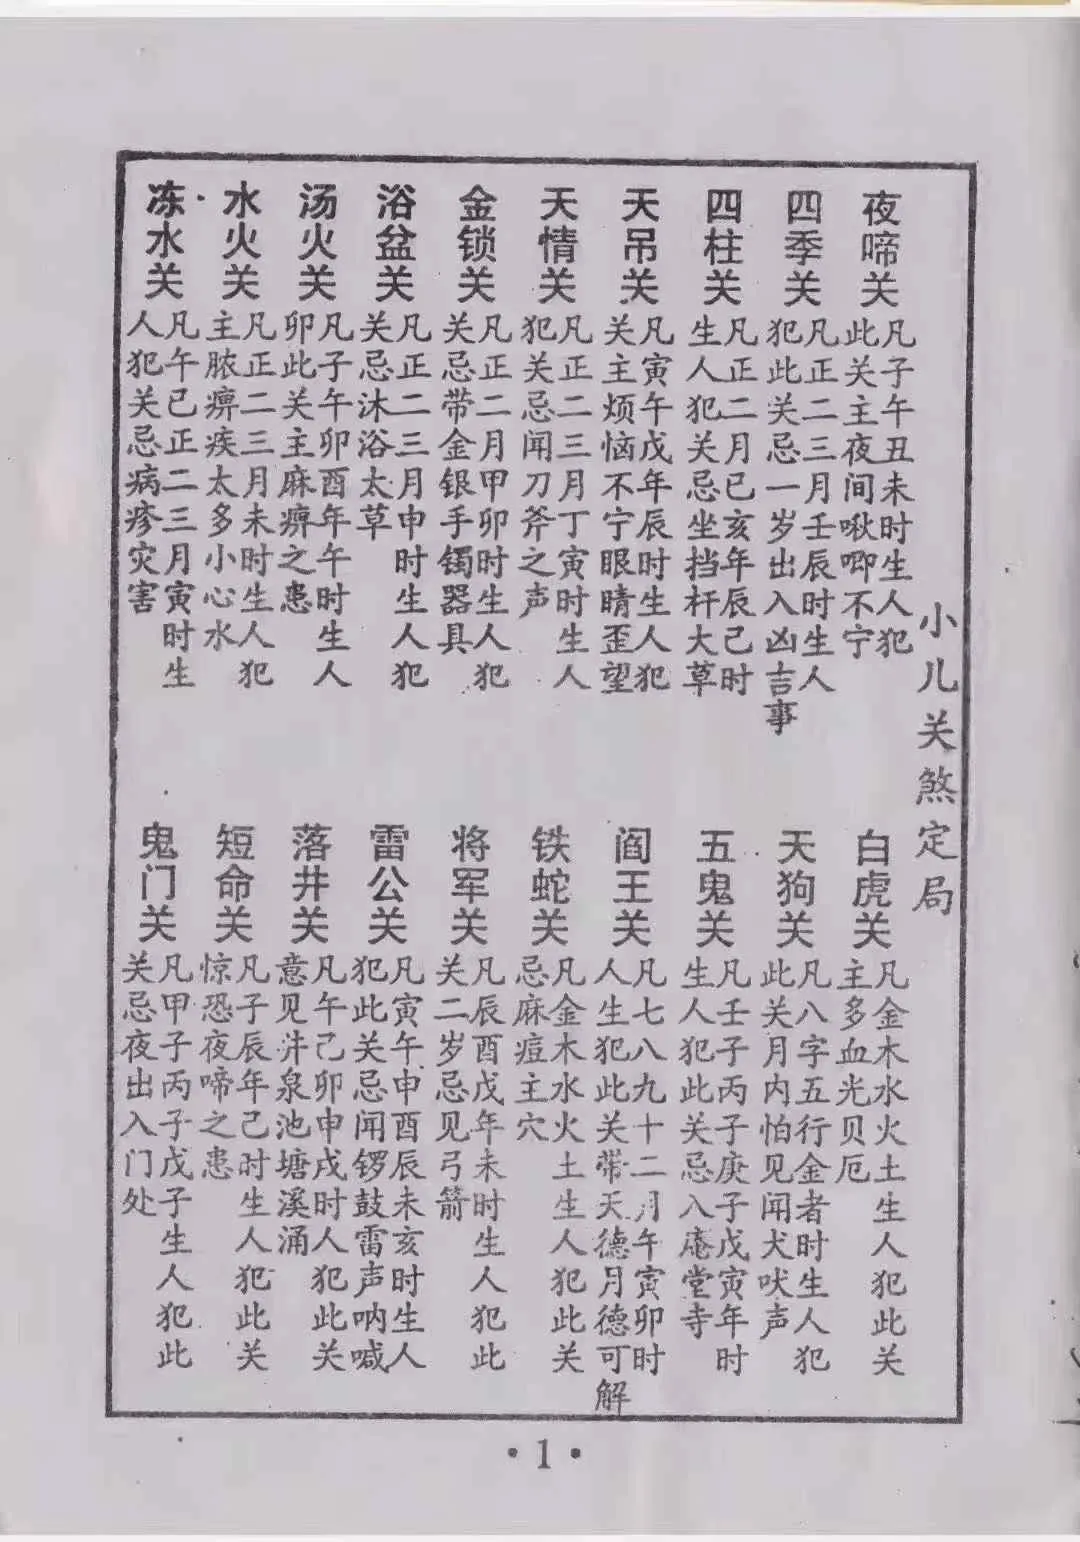 小儿关煞定局
夜啼关
凡子午丑未时生人犯
此关主夜间啾唧不宁
四季关
凡正二三月壬辰时生人
犯此关忌一岁出入凶吉事
四柱关
凡正二月巳亥年辰己时
生人犯关忌坐挡杆大草
天吊关
凡寅午戊年辰时生人犯
关主烦恼不宁眼睛歪望
天情关
凡正二三月丁寅时生人
犯关忌闻刀斧之声
金锁关
凡正二月甲卯时生人犯
关忌带金银手镯器具
浴盆关
凡正二三月申时生人犯
关忌沐浴太草
汤火关
凡子午卯酉年午时生人
卯此关主麻痹之患
水火关
凡正二三月未时生人犯
主脓痹疾太多小心水
冻水关
凡午已正二三月寅时生
人犯关忌病疹灾害
白虎关
凡金木水火土生人犯此关
主多血光贝厄
天狗关
凡八字五行金者时生人犯
此关月内怕见闻犬吠声
五鬼关
凡壬子丙子庚子戊寅年时
生人犯此关忌入庵堂寺
阎王关
凡七八九十二月午寅卯时
人生犯此关带天德月德可解
铁蛇关
凡金木水火土生人犯此关
忌麻痘主穴
将军关
凡辰酉戊年未时生人犯此
关二岁忌见弓箭
雷公关
凡寅午申酉辰未亥时生人
犯此关忌闻锣鼓雷声呐喊
落井关
凡午己卯申戌时人犯此关
意见井泉池塘溪涌
短命关
凡子辰年己时生人犯此关
惊恐夜啼之患
鬼门关
凡甲子丙子戊子生人犯此
关忌夜出入门处
·1·